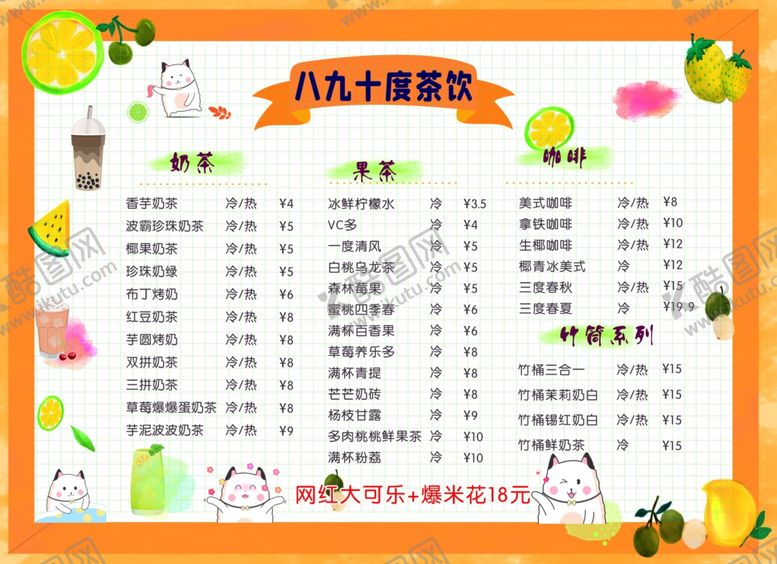 八九十度茶饮
奶茶
香芋奶茶 冷/热 ¥4
波霸珍珠奶茶 冷/热 ¥5
椰果奶茶 冷/热 ¥5
珍珠奶绿 冷/热 ¥5
布丁烤奶 冷/热 ¥6
红豆奶茶 冷/热 ¥8
芋圆烤奶 冷/热 ¥8
双拼奶茶 冷/热 ¥8
三拼奶茶 冷/热 ¥8
草莓爆爆蛋奶茶 冷/热 ¥8
芋泥波波奶茶 冷/热 ¥9
果茶
冰鲜柠檬水 冷 ¥3.5
VC多 冷 ¥4
一度清风 冷 ¥5
白桃乌龙茶 冷 ¥5
森林莓果 冷 ¥5
蜜桃四季春 冷 ¥6
满杯百香果 冷 ¥6
草莓养乐多 冷 ¥8
满杯青提 冷 ¥8
芒芒奶砖 冷 ¥8
杨枝甘露 冷 ¥9
多肉桃桃鲜果茶 冷 ¥10
满杯粉荔 冷 ¥10
咖啡
美式咖啡 冷/热 ¥8
拿铁咖啡 冷/热 ¥10
生椰咖啡 冷/热 ¥12
椰青冰美式 冷 ¥12
三度春秋 冷/热 ¥15
三度春夏 冷 ¥19.9
竹筒系列
竹桶三合一 冷/热 ¥15
竹桶茉莉奶白 冷/热 ¥15
竹桶锡红奶白 冷/热 ¥15
竹桶鲜奶茶 冷 ¥15
网红大可乐+爆米花18元
酷图网
www.ikutu.com